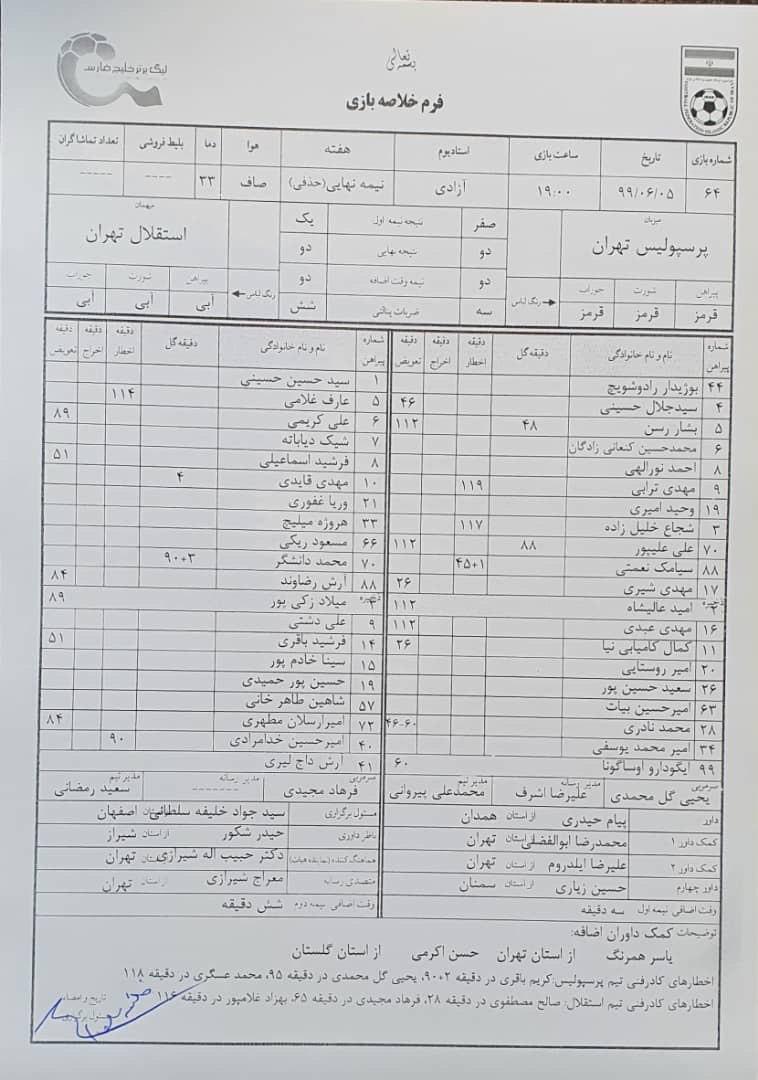 بسمه تعالی
لیگ برتر خلیج فارس
فرم خلاصه بازی
شماره بازی تاریخ ساعت بازی استادیوم هفته هوا دما بلیط فروشی تعداد تماشاگران
۶۴ ۹۹/۰۶/۰۵ ۱۹:۰۰ آزادی نیمه نهایی(حذفی) صاف ۳۳ ---- -----
میزبان پرسپولیس تهران
میهمان استقلال تهران
صفر نتیجه نیمه اول یک
دو نتیجه نهایی دو
دو نیمه وقت اضافه دو
سه ضربات پنالتی شش
پیراهن شورت جوراب رنگ لباس
قرمز قرمز قرمز
رنگ لباس پیراهن شورت جوراب
آبی آبی آبی
شماره پیراهن نام و نام خانوادگی دقیقه گل دقیقه اخطار دقیقه اخراج دقیقه تعویض
۴۴ بوژیدار رادوشویچ
۴ سیدجلال حسینی ۴۶
۵ بشار رسن ۴۸ ۱۱۲
۶ محمدحسین کنعانی زادگان
۸ احمد نورالهی
۹ مهدی ترابی ۱۱۹
۱۹ وحید امیری
۳ شجاع خلیل زاده ۱۱۷
۷۰ علی علیپور ۸۸ ۱۱۲
۸۸ سیامک نعمتی ۴۵+۱
۱۷ مهدی شیری ۲۶
ذخیره ۲ امید عالیشاه ۱۱۲
۱۶ مهدی عبدی ۱۱۲
۱۱ کمال کامیابی نیا ۲۶
۲۰ امیر روستایی
۲۶ سعید حسین پور
۶۳ امیرحسین بیات
۲۸ محمد نادری ۴۶-۶۰
۳۴ امیر محمد یوسفی
۹۹ ایگودارو اوساگونا ۶۰
شماره پیراهن نام و نام خانوادگی دقیقه گل دقیقه اخطار دقیقه اخراج دقیقه تعویض
۱ سید حسین حسینی
۵ عارف غلامی ۱۱۴
۶ علی کریمی ۸۹
۷ شیک دیاباته
۸ فرشید اسماعیلی ۵۱
۱۰ مهدی قایدی ۴
۲۱ وریا غفوری
۳۳ هروژه میلیچ
۶۶ مسعود ریگی
۷۰ محمد دانشگر ۹۰+۳
۸۸ آرش رضاوند ۸۴
ذخیره ۳ میلاد زکی پور ۸۹
۹ علی دشتی
۱۴ فرشید باقری ۵۱
۱۵ سینا خادم پور
۱۹ حسین پور حمیدی
۵۷ شاهین طاهر خانی
۷۲ امیرارسلان مطهری ۸۴
۴۰ امیرحسین خدامرادی ۹۰
۴۱ آرش داج لیری
سرمربی یحیی گل محمدی مدیر رسانه علیرضا اشرف مدیر تیم محمدعلی پیروانی
سرمربی فرهاد مجیدی مدیر رسانه ------- مدیر تیم سعید رمضانی
داور پیام حیدری از استان همدان
کمک داور ۱ محمدرضا ابوالفضلی از استان تهران
کمک داور ۲ علیرضا ایلدروم از استان تهران
داور چهارم حسین زیاری از استان سمنان
وقت اضافی نیمه اول سه دقیقه
مسئول برگزاری سید جواد خلیفه سلطانی از استان اصفهان
ناظر داوری حیدر شکور از استان شیراز
هماهنگ کننده (نماینده هیات) دکتر حبیب اله شیرازی از استان تهران
متصدی رسانه معراج شیرازی از استان تهران
وقت اضافی نیمه دوم شش دقیقه
توضیحات کمک داوران اضافه:
یاسر همرنگ از استان تهران حسن اکرمی از استان گلستان
اخطارهای کادرفنی تیم پرسپولیس:کریم باقری در دقیقه ۲+۹۰، یحیی گل محمدی در دقیقه ۹۵، محمد عسگری در دقیقه ۱۱۸
اخطارهای کادرفنی تیم استقلال: صالح مصطفوی در دقیقه ۲۸، فرهاد مجیدی در دقیقه ۶۵، بهزاد غلامپور در دقیقه ۱۱۶
تاریخ و امضاء
مسئول برگزاری